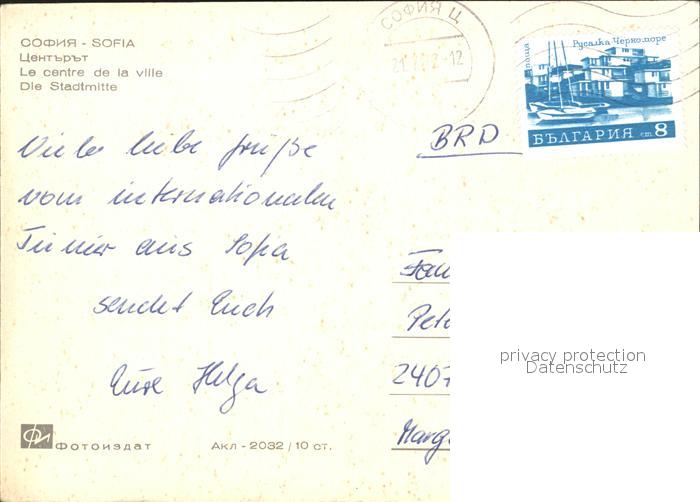 СОФИЯ - SOFIA
Центърът
Le centre de la ville
Die Stadtmitte
СОФИЯ Ц
-12
поща
Русалка Черноморе
БЪЛГАРИЯ ст. 8
BRD
Viele liebe Grüße
vom internationalen
Turnier aus Sofia
sendet Euch
Eure Helga
Fam
Pet
2407
Marg
privacy protection
Datenschutz
Фотоиздат
Акл - 2032 / 10 ст.